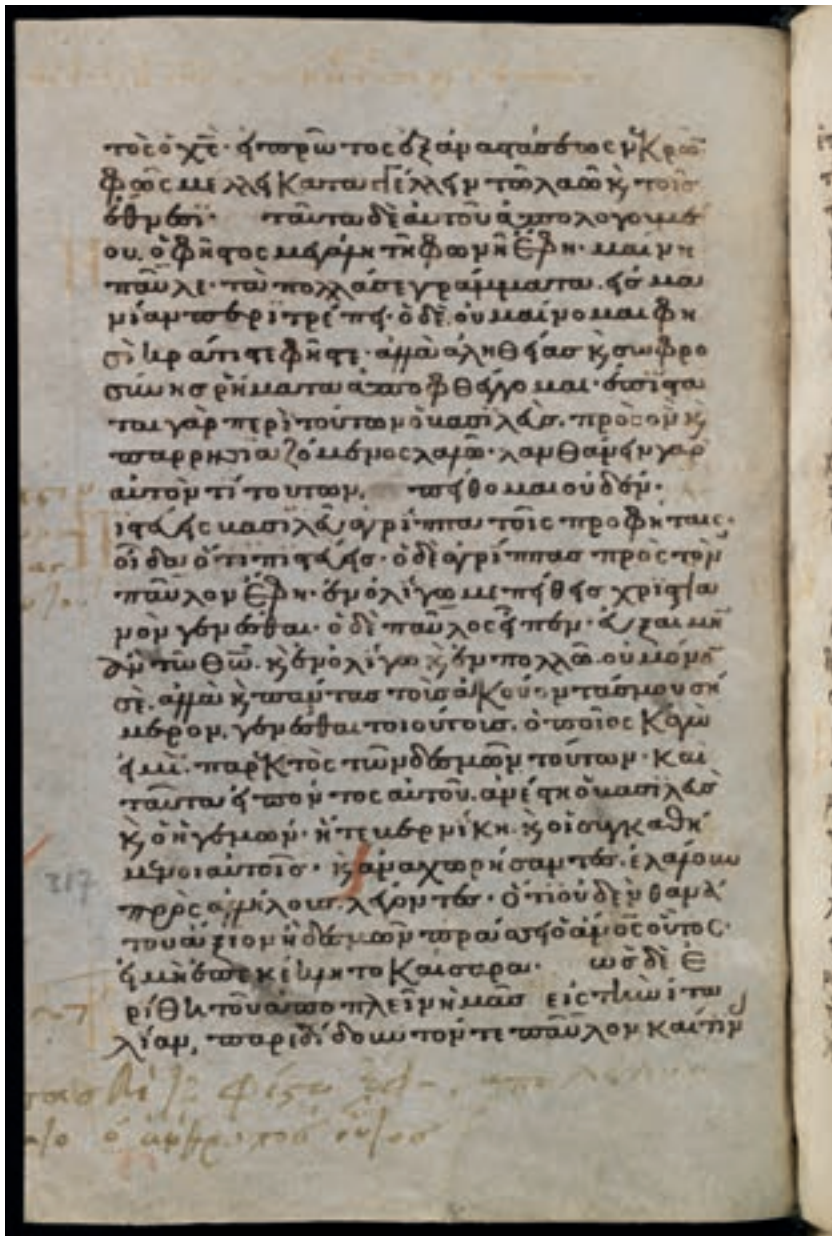 τὸς ὁ χς· εἰ πρῶτος ἐξ ἀναστάσεως νεκρῶ
φῶς μέλλει καταγγέλλειν τῶ λαῶ κ τοῖς
ἔθνεσι· ταῦτα δὲ αὐτοῦ ἀπολογουμέ
ου. ὁ φῆστος μεγάλη τῆ φωνῆ ἔφη· μαίνη
παῦλε· τὰ πολλά σε γράμματα εἰς μα
νίαν περιτρέπει· ὁ δὲ οὐ μαίνομαι φη
σὶ κράτιστε φῆστε· ἀλλὰ ἀληθείας κ σωφρο
σύνης ρήματα ἀποφθέγγομαι· ἐπίστα
ται γὰρ περὶ τούτων ὁ βασιλεὺς. πρὸς ὃν κ
παρρησιαζόμενος λαλῶ· λανθάνειν γὰρ
αὐτὸν τί τουτων, πείθομαι οὐδέν·
ιστεύεις βασιλεῦ ἀγρίππα τοῖς προφήταις·
οἶδα ὅτι πιστεύεις· ὁ δὲ ἀγρίππας πρὸς τὸν
παῦλον ἔφη· ἐν ὀλίγω με πείθεις χριστια
νὸν γενέσθαι· ὁ δὲ παῦλος εἶπεν· εὐξαιμη
ἂν τῶ θῶ. κ ἐν ὀλίγω κ ἐν πολλῶ. οὐ μόνο
σὲ. ἀλλὰ κ πάντας τοὺς ἀκούοντάς μου σή
μερον, γενέσθαι τοιούτους. ὁποῖος καγὼ
εἰμὶ. παρεκτὸς τῶν δεσμῶν τούτων· καὶ
ταῦτα εἰπόντος αὐτοῦ. ἀνέστη ὁ βασιλεὺς
κ, ὁ ἡγεμών· ἥ τε βερνίκη. κ οἱ συγκαθή
μενοι αὐτοῖς· κ ἀναχωρήσαντες. ἐλάλουν
πρὸς ἀλλήλους λέγοντες· ὅτι οὐδὲν θανά
του ἄξιον ἢ δεσμῶν πράσσει ὁ ἄνος οὗτος·
ὡς δὲ ἐ
ρίθη τοῦ ἀποπλεῖν ἡμᾶς εἰς τὴν ἰτα
λίαν, παρεδίδουν τόν τε παῦλον καί τιν
317